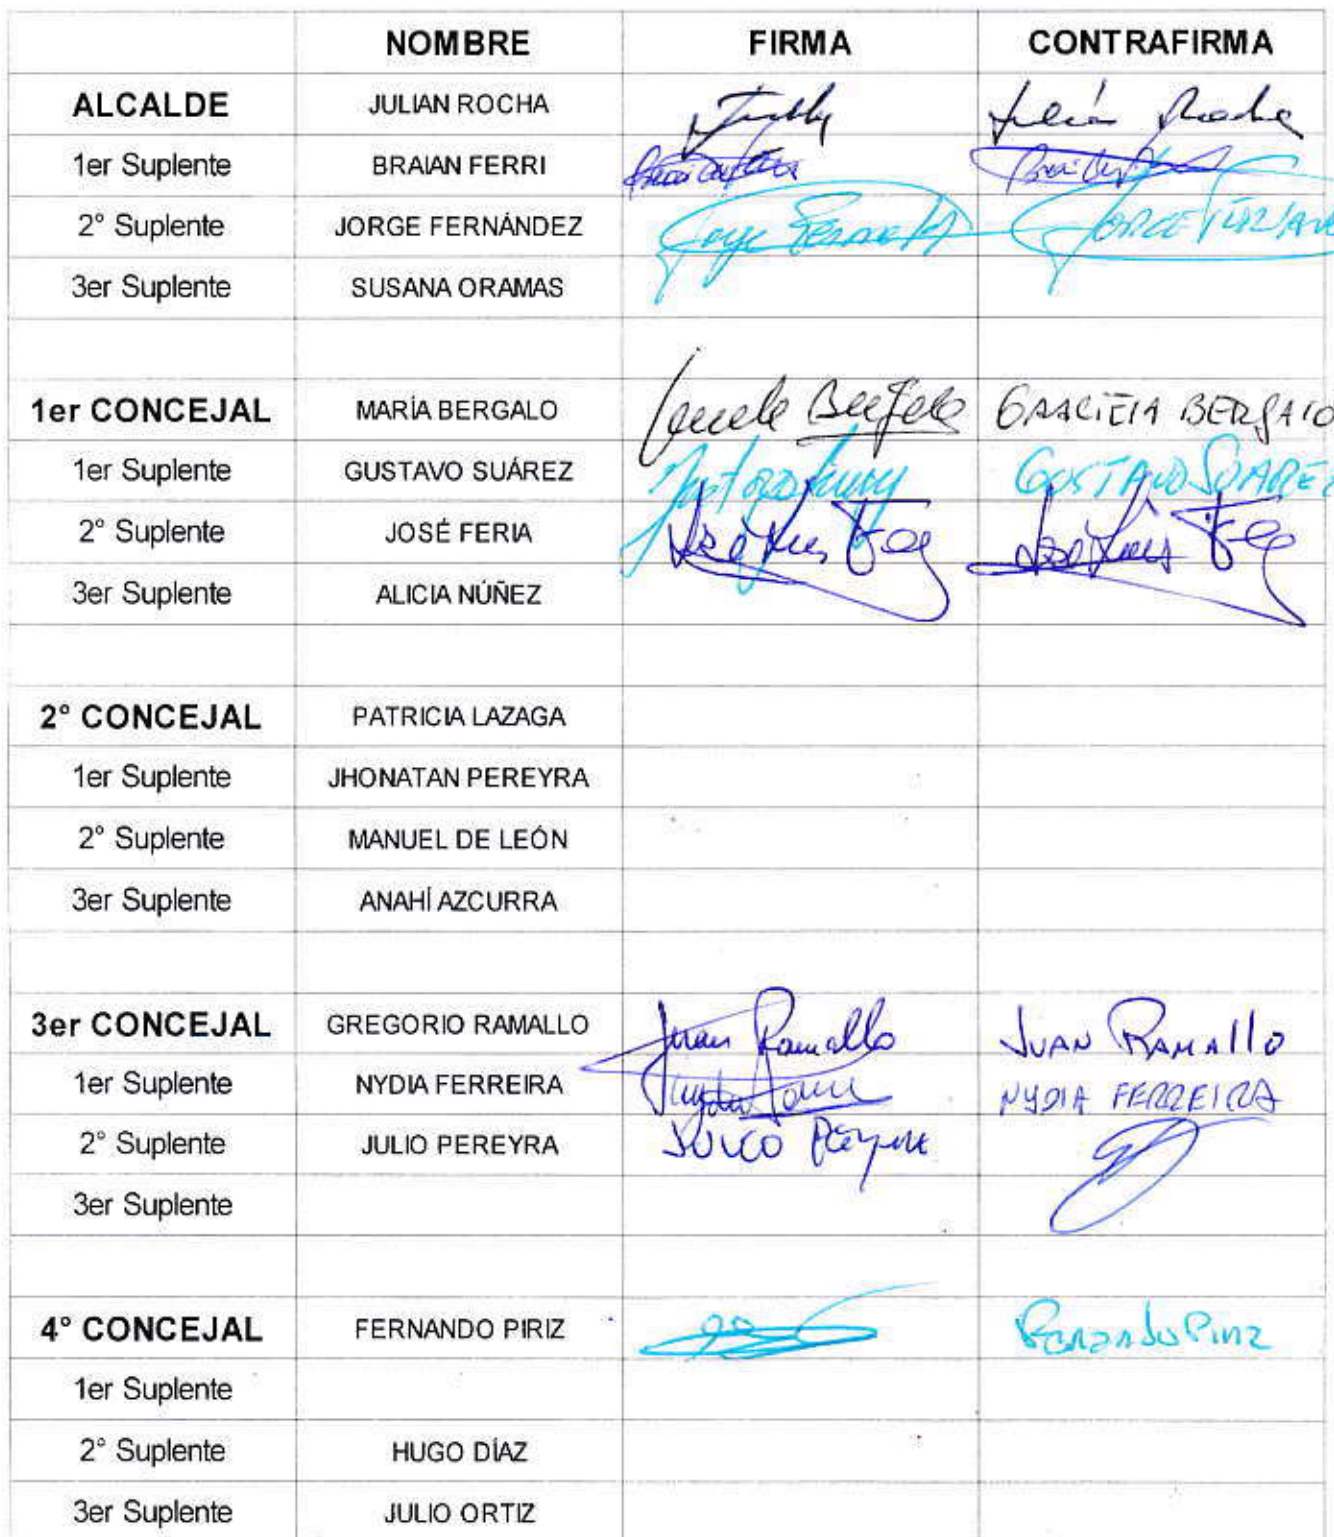 NOMBRE FIRMA CONTRAFIRMA
ALCALDE JULIAN ROCHA Julián Rocha
1er Suplente BRAIAN FERRI
2° Suplente JORGE FERNÁNDEZ Jorge
3er Suplente SUSANA ORAMAS
1er CONCEJAL MARÍA BERGALO GRACIELA BERGALO
1er Suplente GUSTAVO SUÁREZ GUSTAVO SUAREZ
2° Suplente JOSÉ FERIA José Luis José Luis
3er Suplente ALICIA NÚÑEZ
2° CONCEJAL PATRICIA LAZAGA
1er Suplente JHONATAN PEREYRA
2° Suplente MANUEL DE LEÓN
3er Suplente ANAHÍ AZCURRA
3er CONCEJAL GREGORIO RAMALLO Juan Ramallo JUAN RAMAllO
1er Suplente NYDIA FERREIRA NYDIA FERREIRA
2° Suplente JULIO PEREYRA JULIO
3er Suplente
4° CONCEJAL FERNANDO PIRIZ Fernando Piriz
1er Suplente
2° Suplente HUGO DÍAZ
3er Suplente JULIO ORTIZ